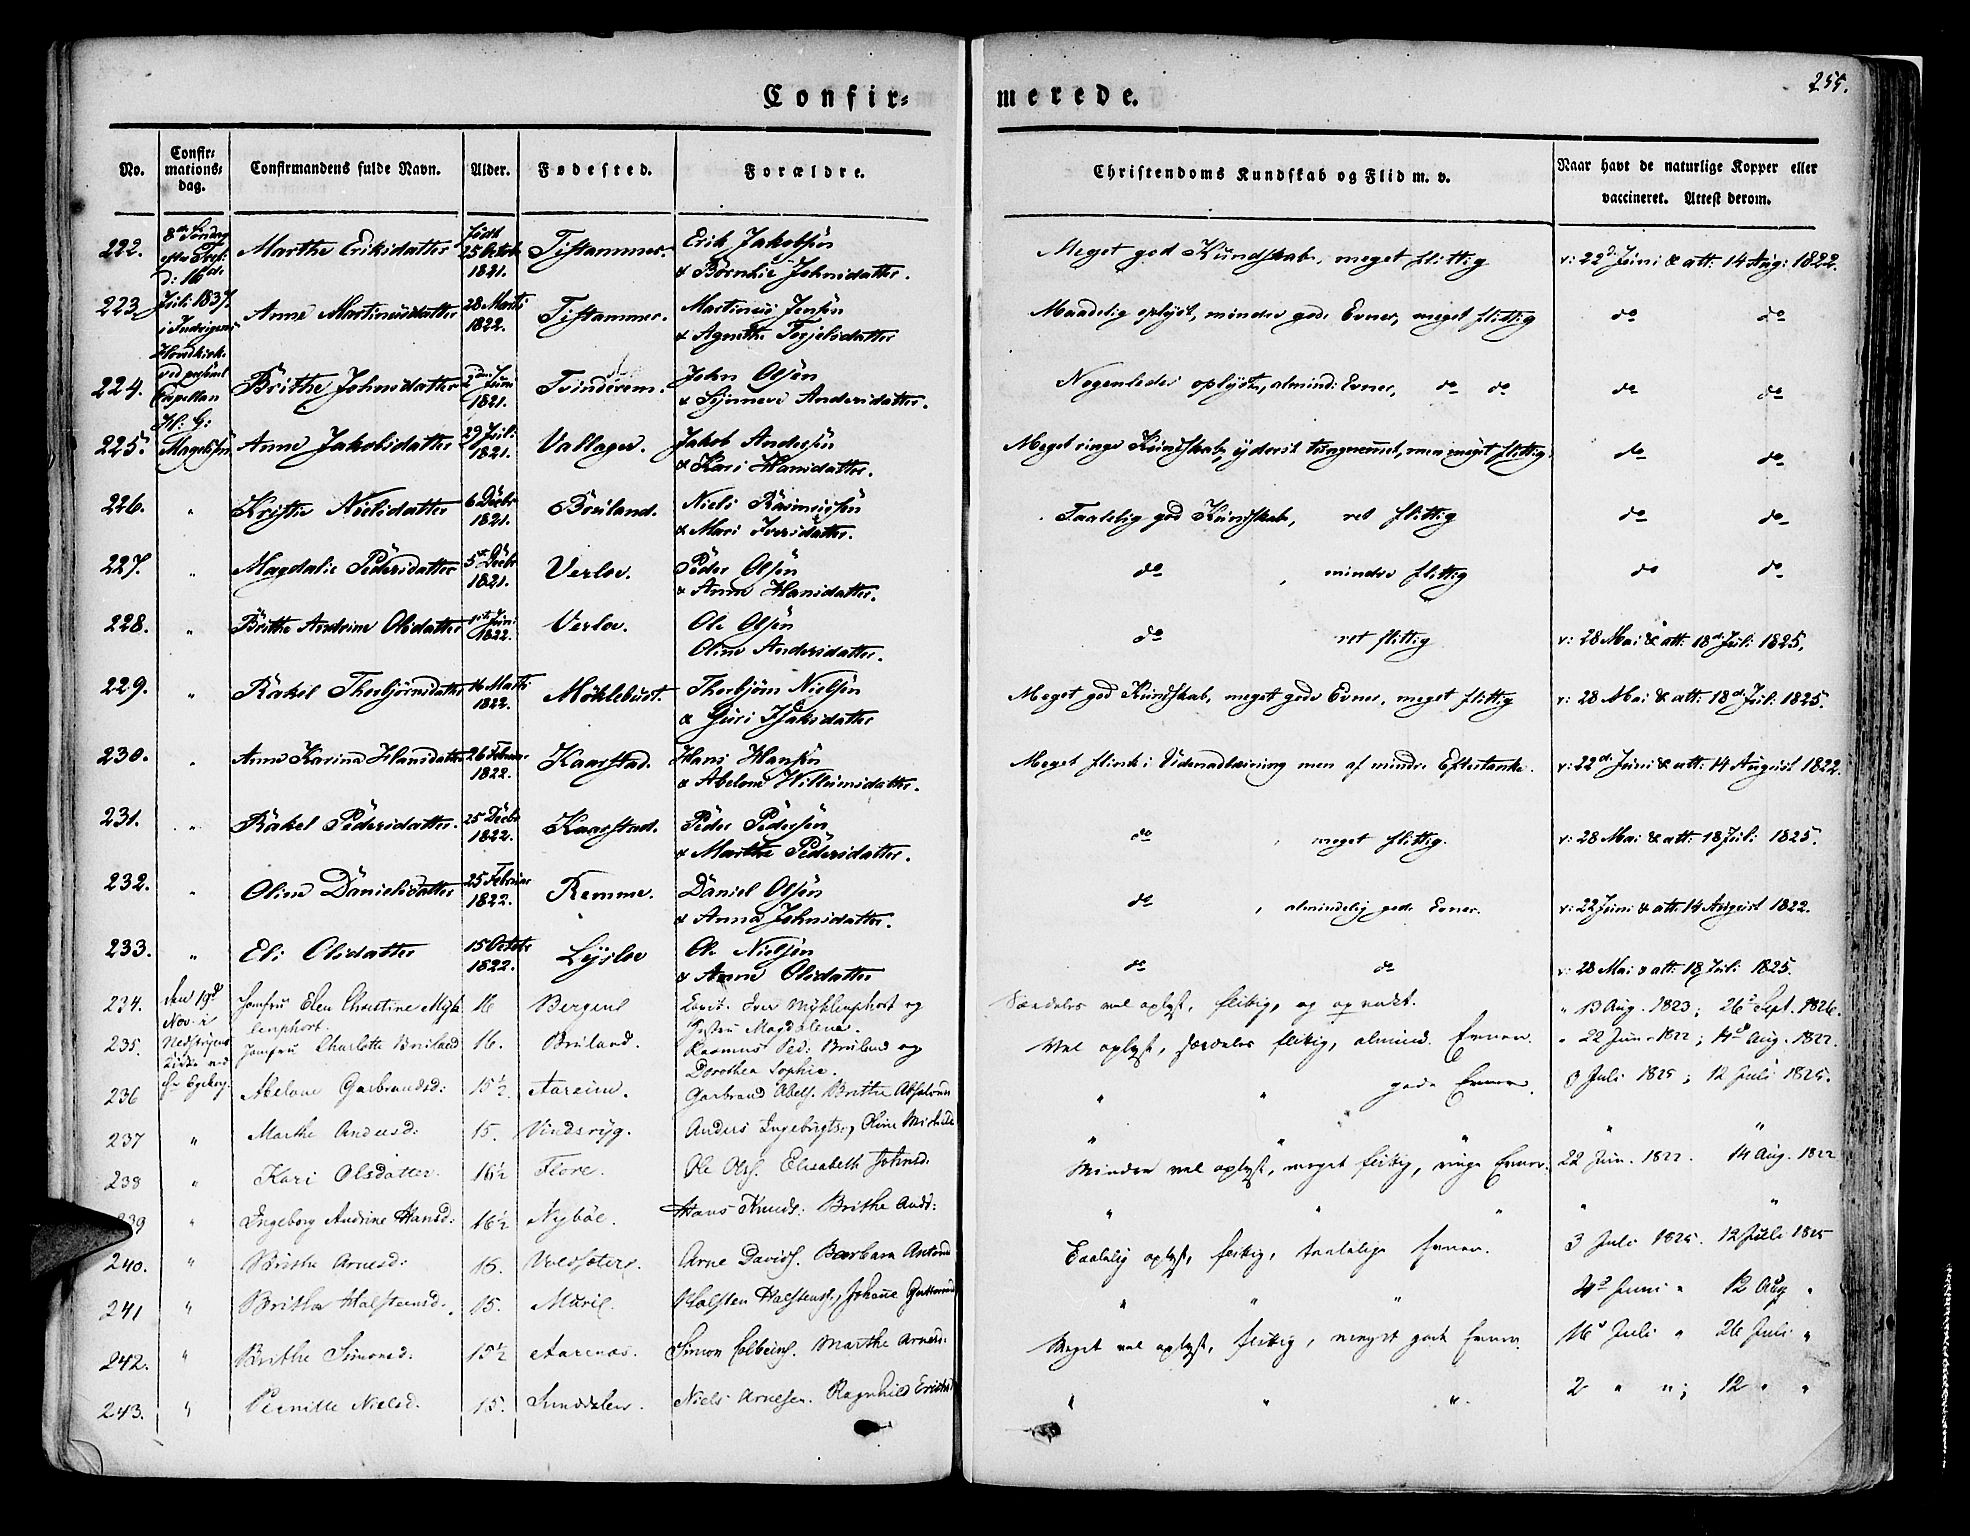 255.
Confir- merede.
No.
Confir-
mations-
dag.
Confirmandens fulde Navn.
Alder.
Fødested.
Forældre.
Christendoms Kundskab og Flid m. v.
Naar havt de naturlige Kopper eller
vaccineret. Attest derom.
8de Søndag
efter Tref:
d: 16de
Juli 1837.
i Indvigens
Hovedkirke
ved
Capellan
H: G:
Magelsen
222. Marthe Eriksdatter født 25 Octob 1821. Tistammer. Erik Jakobsen
& Børnhie Johnsdatter. Meget god Kundskab, meget flittig v: 22d Juni & att: 14 Aug: 1822.
223. Anne Martinusdatter 28 Marti 1822. Tistammer. Martinus Jensen
& Agnethe Terjelsdatter Maadelig oplyst, mindre gode Evner, meget flittig do do
224. Brithe Johnsdatter 2den Juni 1821. Tvinderem. John Olsen
& Synneve Andersdatter. Nogenledes oplyst, almind: Evner, do do do do
225. Anne Jakobsdatter 29 Juli 1821. Vallager. Jakob Andersen
& Kari Hansdatter. Meget ringe Kundskab, yderst tungnemmet, men meget flittig. do do
226. " Kristie Nielsdatter 6 Decbr 1821. Breiland. Niels Rasmussen
& Mari Iversdatter. Taalelig god Kundskab, ret flittig do do
227. " Magdalie Pedersdatter 5te Decbr 1821. Verloe. Peder Olsen
& Anne Hansdatter. do , mindre flittig do do
228. " Brithe Andrine Olsdatter 1st Juni 1822. Verloe. Ole Olsen
Oline Andersdatter. do ret flittig v: 28 Mai & att: 18d Juli 1825.
229. " Rakel Thorbjørnsdatter 16 Marti 1822. Møklebust. Thorbjørn Nielsen
& Guri Isaksdatter Meget god Kundskab, meget gode Evner, meget flittig v: 28 Mai & att: 18d Jul: 1825.
230. " Anne Karina Hansdatter 26 Februar 1822. Kaarstad. Hans Hansen
& Abelone Willumsdatter. Meget flink i Udenadlæsning men af mindre Eftertanke. v: 22d Juni & att: 14 August 1822.
231. " Rakel Pedersdatter. 25 Decbr 1822. Kaarstad. Peder Pedersen
& Marthe Pedersdatter. do , meget flittig. v: 28 Mai & att: 18 Juli 1825.
232. " Oline Danielsdatter 25 Februar 1822. Remme. Daniel Olsen
& Anna Johnsdatter. do , almindelig gode Evner. v: 22 Juni & att: 14 August 1822.
233. " Eli Olsdatter 15 Octobr 1822. Lysloe Ole Nielsen
& Anne Olsdatter do do v: 28 Mai & att: 18 Juli 1825.
den 19d
Nov. i
Kirke ved
Hr Egeberg.
234. Jomfru Elen Christine Myk-
lenphort. 16 Bergens Iver Myklenphort og
Hustru Magdalena. Særdeles vel oplyst, flittig, og opvakt. " 13 Aug. 1823; 26d Sept. 1826.
235. Jomfru Charlotte Breiland 16. Breiland. Rasmus Ped: Breiland og
Dorothea Sophie. Vel oplyst, særdeles flittig, almind. Evner. " 22 Jun. 1822; 14d Aug. 1822.
236 Abelone Garbrandsd: 15½ Aareim. Garbrand Abels. Brithe Absalons " " gode Evner. 3 Juli 1825; 12 Juli 1825.
237 " Marthe Andersd: 15. Vindsryg. Anders Ingebrigts., Oline Michels " " " " "
238 " Kari Olsdatter 16½ Flore. Ole Ols. Elisabeth Johnsd. Minder vel oplyst, meget flittig, ringe Evner. 22 Jun. 1822. 14 Aug. 1822
239 " Ingeborg Andrine Hansd: 16½ Nybøe. Hans Knuds: Brithe Ands: " " " " "
240. " Brithe Arnesd: 16. Voldsæter. Arne Davids. Barbara Antons Taalelig oplyst, flittig, taalelige Evner. 3 Juli 1825. 12 Juli 1825
241 " Brithe Halsteensd. 15. Muril Halsten Halstens., Johane " " " 4d Juni " 12 Aug "
242. " Brithe Simonsd. 15½ Aarenæs. Simon Marthe Arnesd: Meget vel oplyst, flittig, meget gode Evner. 16d Juli " 26 Juli "
243. " Pernille Nielsd. 15. Sunddalen. Niels Arnesen. Ragnhild " " " 2 " "; 12 " "